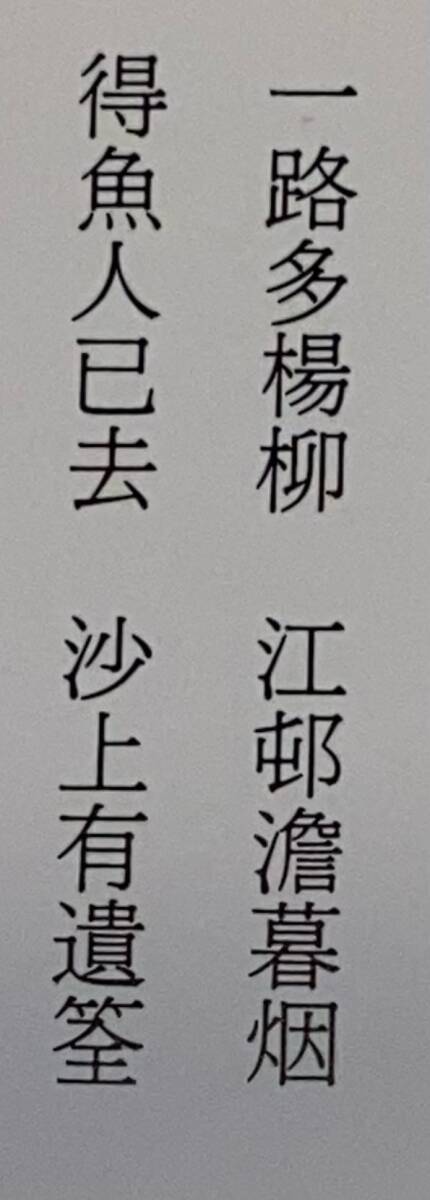 一路多楊柳　江邨澹暮烟
得魚人已去　沙上有遺筌